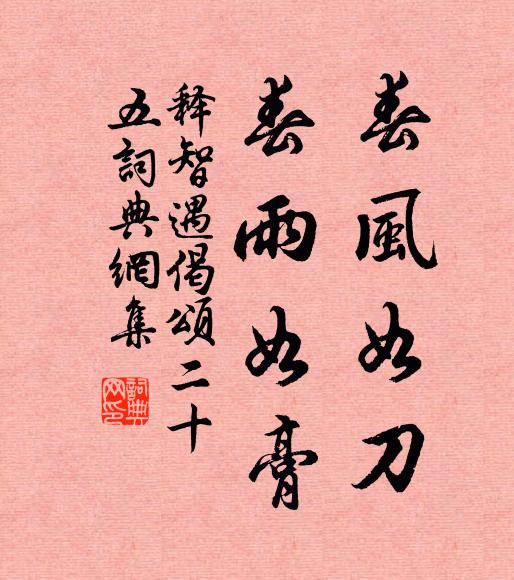 春風如刀
春雨如膏
释智遇偈頌二十
五詞典網集
詞典
网印